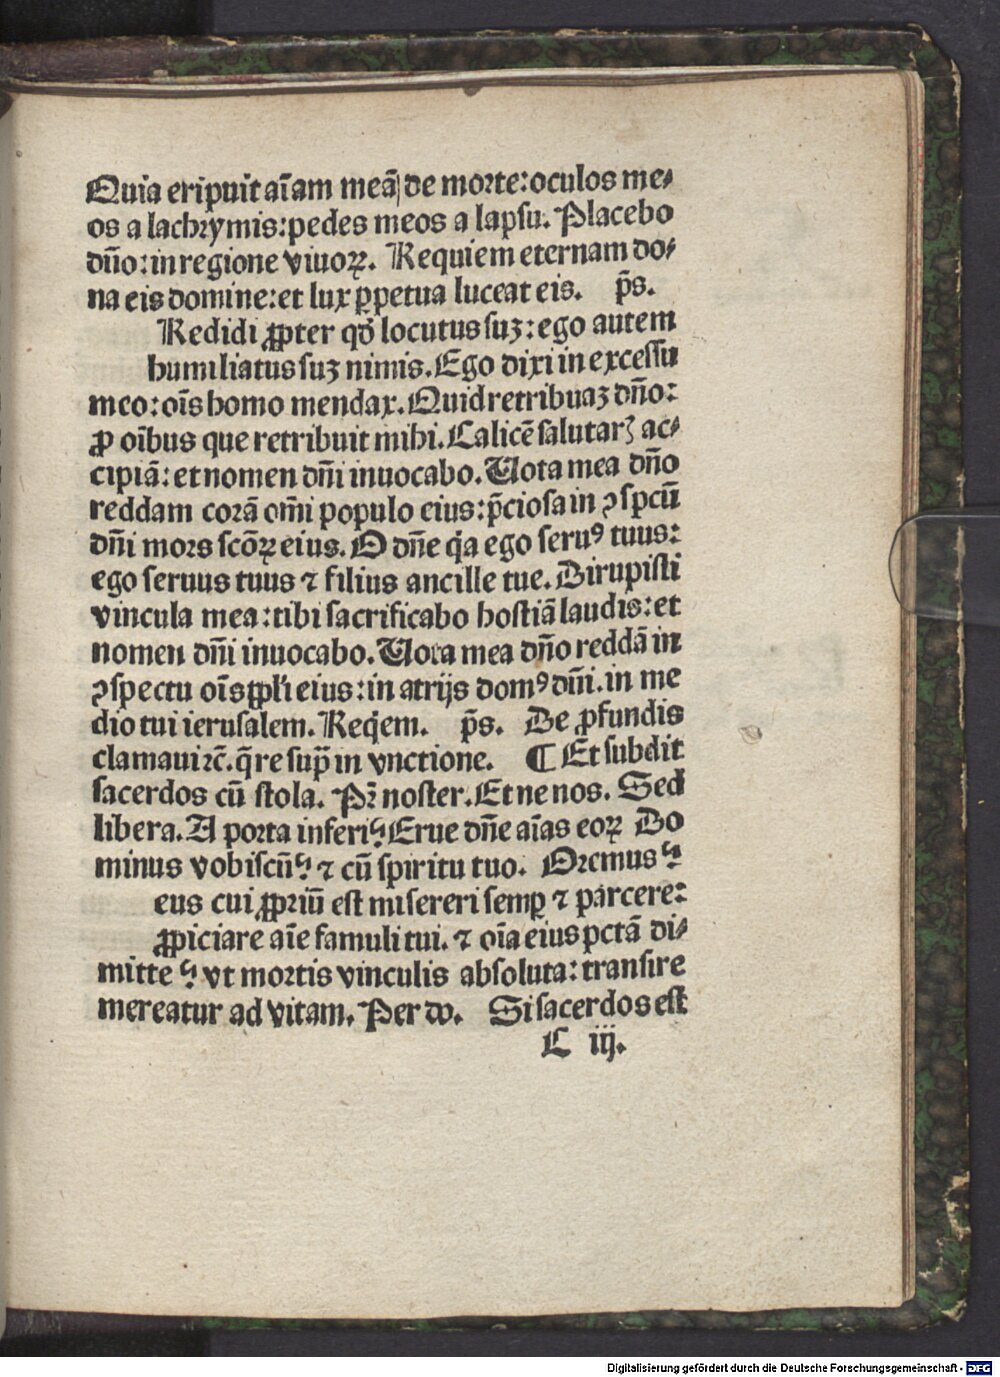 Quia eripuit aīam meā de morte: oculos me⸗
os a lachrymis: pedes meos a lapsu. Placebo
dn̄o: in regione viuoꝝ. Requiem eternam do⸗
na eis domine: et lux ꝑpetua luceat eis. p̄s.
Redidi ꝓpter qđ locutus suꝫ: ego autem
humiliatus suꝫ nimis. Ego dixi in excessu
meo: oīs homo mendax. Quid retribuaꝫ dn̄o:
ꝓ oībus que retribuit mihi. Calicē salutarꝫ ac⸗
cipiā: et nomen dn̄i inuocabo. Uota mea dn̄o
reddam corā om̄i populo eius: p̄ciosa in ꝯspcū
dn̄i mors scōꝝ eius. O dn̄e q̄a ego seruꝰ tuus:
ego seruus tuus ⁊ filius ancille tue. Dirupisti
vincula mea: tibi sacrificabo hostiā laudis: et
nomen dn̄i inuocabo. Uota mea dn̄o reddā in
ꝯspectu oīs ppl̄i eius: in atrijs domꝰ dn̄i. in me
dio tui ierusalem. Req̄em. p̄s. De ꝓfundis
clamaui ⁊c̄. q̄re sup̄ in vnctione. ¶ Et subdit
sacerdos cū stola. Pr̄ noster. Et ne nos. Sed
libera. A porta inferi. Erue dn̄e aīas eoꝝ Do
minus vobiscū. ⁊ cū spiritu tuo. Oremus.
eus cui ꝓpriū est misereri semꝑ ⁊ parcere:
ꝓpiciare aīe famuli tui. ⁊ oīa eius pctā di⸗
mitte. vt mortis vinculis absoluta: transire
mereatur ad vitam. Per do. Si sacerdos est
C iij.
Digitalisierung gefördert durch die Deutsche Forschungsgemeinschaft - DFG